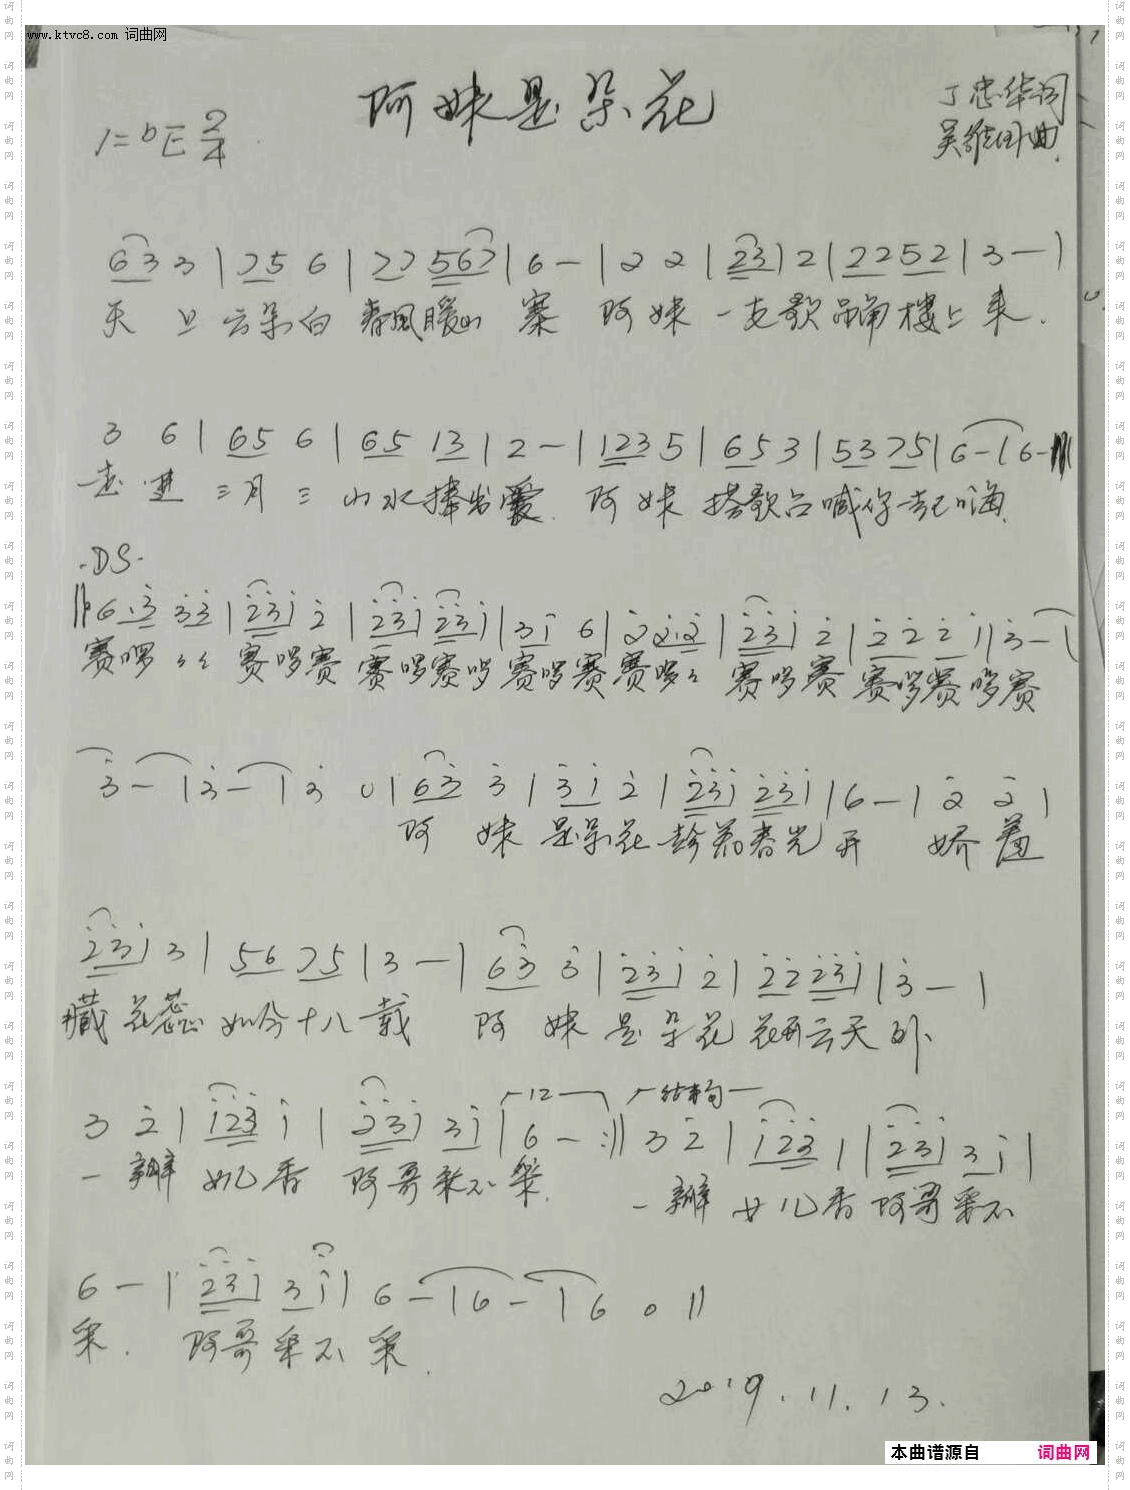 www.ktvc8.com 词曲网
阿妹是朵花
丁忠华词
1=bE 2/4
吴维田曲
63 3 | 25 6 | 22 562 | 6 - | 2 2 | 23 2 | 2252 | 3 - |
天上云朵白 春风暖山寨 阿妹一支歌 吊角楼上来.
3 6 | 65 6 | 65 13 | 2 - | 123 5 | 65 3 | 53 25 | 6 - | 6 -
走进三月三 山水捧出爱. 阿妹搭歌台喊你一起嗨.
.DS.
6.3 33 | 231 2 | 231 231 | 31 6 | 2 2.2 | 231 2 | 2 2 2 1 | 3 - |
赛啰 赛啰赛 赛啰赛啰赛啰赛 赛啰 赛啰赛 赛啰赛啰赛
3 - | 3 - | 3 0 | 63 3 | 31 2 | 231 231 | 6 - | 2 2 |
阿妹是朵花 趁着春光开 娇羞
231 3 | 56 25 | 3 - | 63 3 | 231 2 | 22 231 | 3 - |
藏花蕊 如今十八载 阿妹是朵花 花开云天外
3 2 | 123 1 | 231 31 | 12 6 - :|| 结束句 3 2 | 123 1 | 231 31 |
一瓣女儿香 阿哥采不采. 一瓣女儿香阿哥采不
6 - | 231 31 | 6 - | 6 - | 6 0 ||
采. 阿哥采不采.
2019.11.13.
本曲谱源自 词曲网